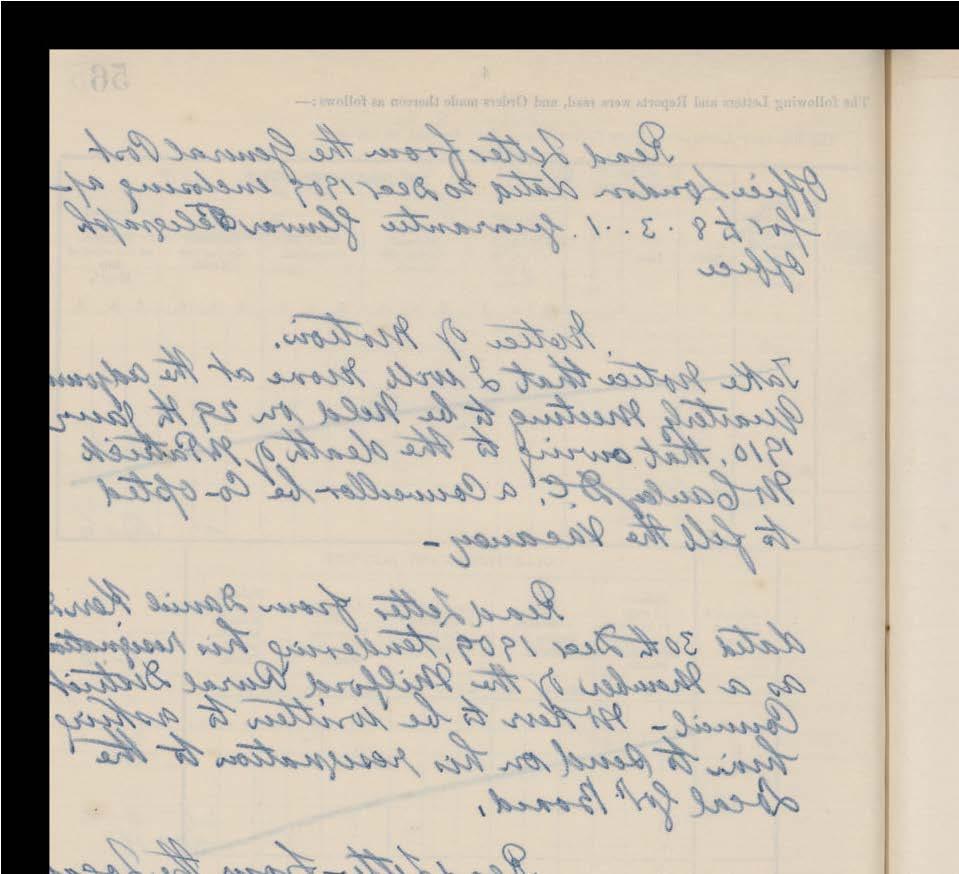 56
4
The following Letters and Reports were read, and Orders made thereon as follows:—
Read Letter from the General Post
Office London dated 20 Dec 1909 enclosing a/c
for £8.3..1. guarantee Telegraph
Office
Notice of Motion.
Take Notice that I will move at the adjourn
Quarterly Meeting to be held on 29th Jany
1910, that owing to the death of Mr Patrick
McCauley D.C. a Councillor be Co-opted
to fill the Vacancy-
Read Letter from Daniel Kerr
dated 30th Dec 1909, tendering his resignation
as a Member of the Milford Rural District
Council - Mr Kerr to be written to asking
him to send on his resignation to the
Local Govt Board.
Letter from the Local